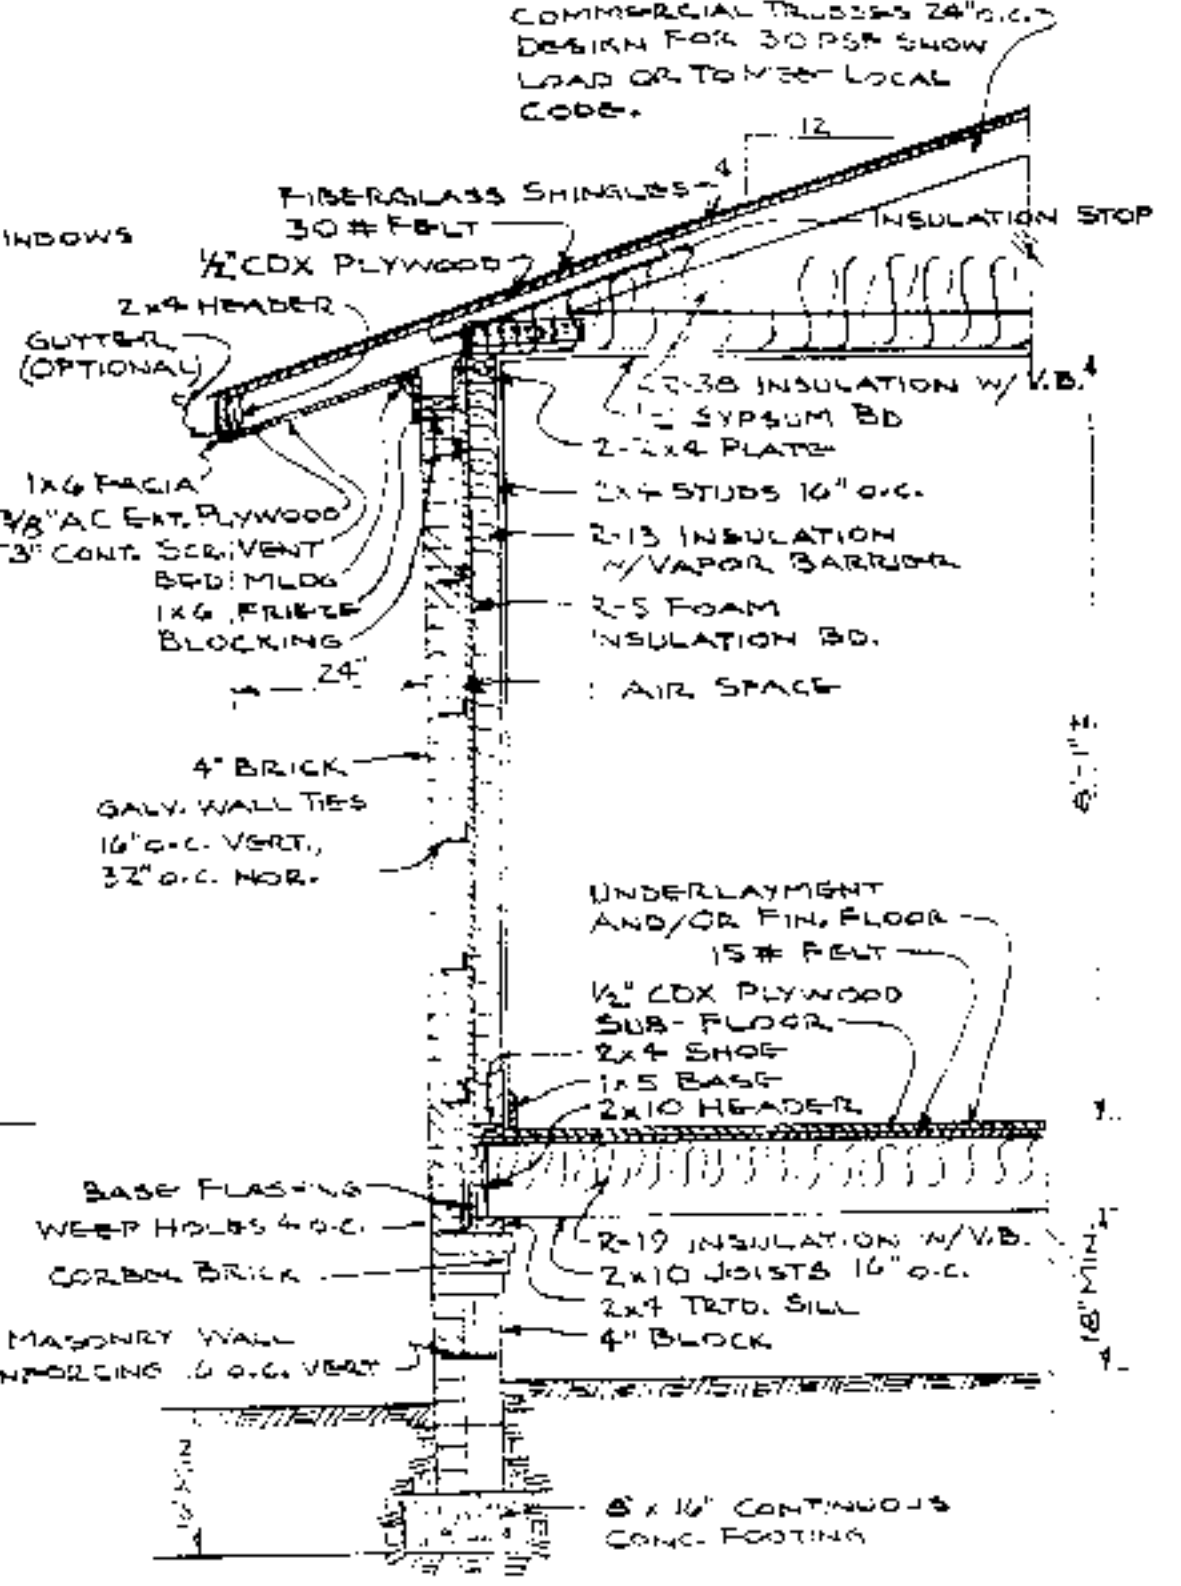 COMMERCIAL TRUSSES 24" O.C.
DESIGN FOR 30 PSF SNOW
LOAD OR TO MEET LOCAL
CODE.
12
4
FIBERGLASS SHINGLES
30 # FELT
INSULATION STOP
INDOWS
1/2" CDX PLYWOOD
2x4 HEADER
GUTTER
(OPTIONAL)
R-38 INSULATION W/V.B.
GYPSUM BD
2-2x4 PLATE
1x6 FACIA
2x4 STUDS 16" O.C.
3/8" AC EXT. PLYWOOD
3" CONT. SCR. VENT
R-13 INSULATION
W/VAPOR BARRIER
BED MLDG
1x6 FRIEZE
BLOCKING
R-5 FOAM
INSULATION BD.
24"
AIR SPACE
4" BRICK
8'-1"
GALV. WALL TIES
16" O.C. VERT.,
32" O.C. HOR.
UNDERLAYMENT
AND/OR FIN. FLOOR
15 # FELT
1/2" CDX PLYWOOD
SUB-FLOOR
2x4 SHOE
1x5 BASE
2x10 HEADER
BASE FLASHING
WEEP HOLES 4 O.C.
CORBEL BRICK
R-19 INSULATION W/V.B.
2x10 JOISTS 16" O.C.
2x4 TRTD. SILL
4" BLOCK
18" MIN.
MASONRY WALL
O.C. VERT
8" x 16" CONTINUOUS
CONC. FOOTING